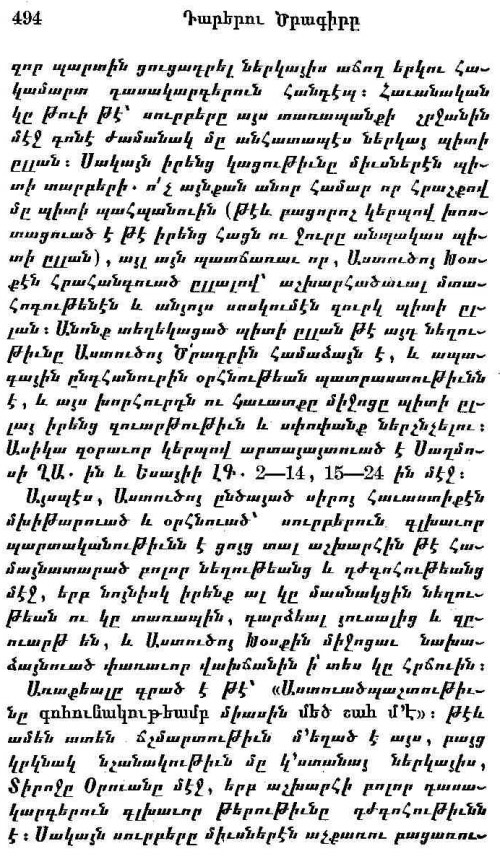 494 Դարերու Ծրագիրը
զոր պարտին ցուցադրել ներկայիս աճող երկու Հա-
կամարտ դասակարգերուն Հանդէպ։ Հաւանական
կը Թուի Թէ՝ սուրբերը այս տառապանքի շրջանին
մէջ գոնէ ժամանակ մը անՀատապէս ներկայ պիտի
ըլլան։ Սակայն իրենց կացութիւնը միւսներէն պի-
տի տարբերի. ո՛չ այնքան անոր Համար որ Հրաշքով
մը պիտի պաՀպանուին (թէև բացորոշ կերպով խոս-
տացուած է թէ իրենց Հացն ու ջուրը անպակաս պի-
տի ըլլան), այլ այն պատճառաւ որ, Աստուծոյ Խօս-
քէն ՀրաՀանգուած ըլլալով՝ աշխարՀածաւալ մտա-
Հոգութենէն և անյոյս սոսկումէն զուրկ պիտի ըլ-
լան։ Անոնք տեղեկացած պիտի ըլլան թէ այդ նեղու-
թիւնը Աստուծոյ Ծրագրին Համաձայն է, և ապա-
գային ընդՀանուրին օրՀնութեան պատրաստութիւնն
է, և այս խորՀուրդն ու Հաւատքը միջոցը պիտի ըլ-
լայ իրենց զուարթութիւն և սփոփանք ներշնչելու։
Ասիկա զօրաւոր կերպով արտայայտուած է Սաղմո-
սի ՂԱ. ին և Եսայիի ԼԳ. 2—14, 15—24 ին մէջ։
Այսպէս, Աստուծոյ ընծայած սիրոյ Հաւաստիքէն
մխիթարուած և օրՀնուած՝ սուրբերուն գլխաւոր
պարտականութիւնն է ցոյց տալ աշխարՀին թէ Հա-
մայնատարած բոլոր նեղութեանց և դժգոՀութեանց
մէջ, երբ նոյնիսկ իրենք ալ կը մասնակցին նեղու-
թեան ու կը տառապին, դարձեալ յուսալից և զը-
ուարթ են, և Աստուծոյ Խօսքին միջոցաւ նախա-
ձայնուած փառաւոր վախճանին ի՛ տես կը Հրճուին։
Առաքեալը գրած է թէ՝ «Աստուածպաշտութիւ-
նը գոհունակութեամբ միասին մեծ շահ մ՚է»։ Թէև
ամեն ատեն ճշմարտութիւն մ՚եղած է այս, բայց
կրկնակ նշանակութիւն մը կ՚ստանայ ներկայիս,
Տիրոջը Օրուանը մէջ, երբ աշխարՀի բոլոր դասա-
կարգերուն գլխաւոր թերութիւնը դժգոՀութիւնն
է։ Սակայն սուրբերը միւսներէն աչքառու բացառու-